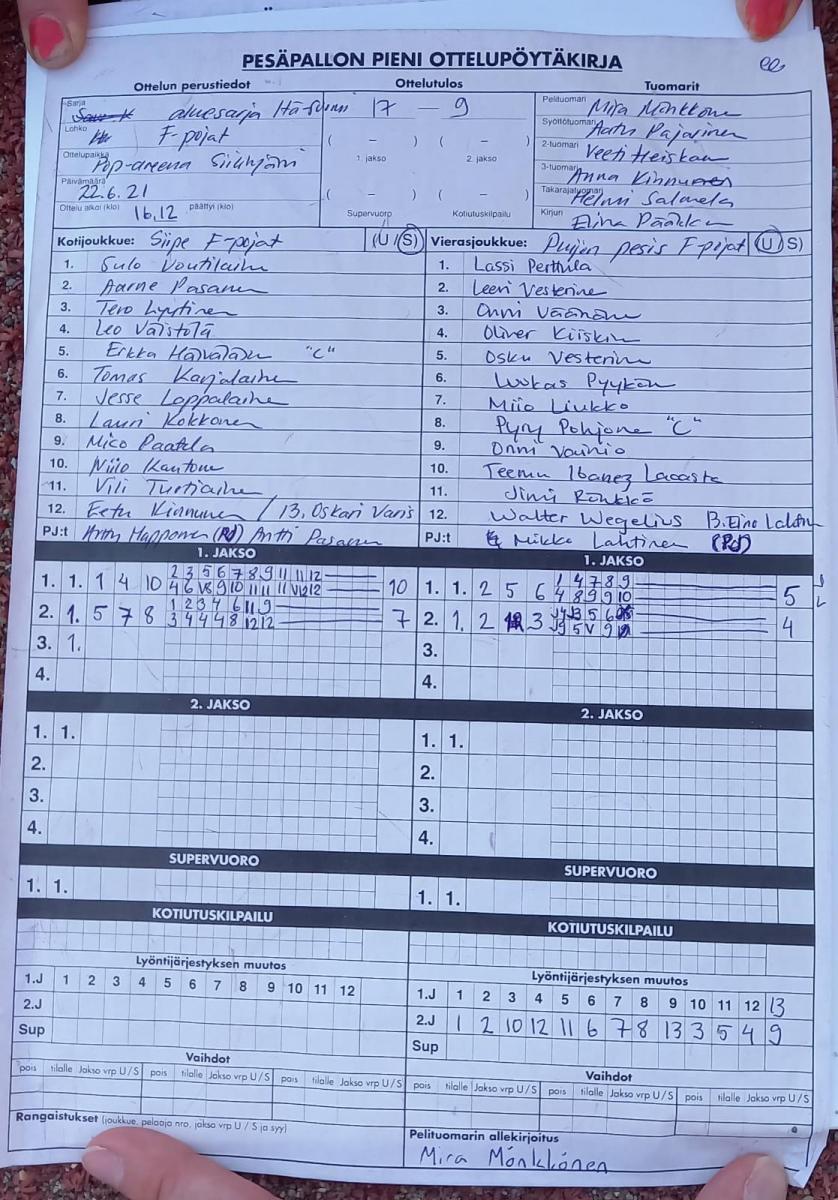 PESÄPALLON PIENI OTTELUPÖYTÄKIRJA
Ottelun perustiedot
Ottelutulos
Tuomarit
Sarja aluesarja Itä-Suomi
Lohko F-pojat
Ottelupaikka Pop-areena Siilinjärvi
Päivämäärä 22.6.21
Ottelu alkoi (klo) 16.12 päättyi (klo)
17 – 9
( – ) ( – )
1. jakso 2. jakso
( – ) ( – )
Supervuoro Kotiutuskilpailu
Pelituomari Mira Mönkkönen
Syöttötuomari Aatu Pajarinen
2-tuomari Veeti Heiskanen
3-tuomari Anna Kinnunen
Takarajatuomari Helmi Salmela
Kirjuri Elina Pääkkönen
Kotijoukkue: Siipe F-pojat (U/S)
1. Sulo Voutilainen
2. Aarne Pasanen
3. Tero Lyytinen
4. Leo Väistölä
5. Erkka "C"
6. Tomas Karjalainen
7. Jesse Loppalainen
8. Lauri Kokkonen
9. Mico Paatela
10. Niilo Kantone
11. Vili Turtiainen
12. Eetu Kinnunen / 13. Oskari Varis
PJ:t Antti Happonen (PJ) Antti Pasanen
Vierasjoukkue: Puijon pesis F-pojat (U/S)
1. Lassi Perttula
2. Leevi Vesterinen
3. Onni Väänänen
4. Oliver Kiiskinen
5. Osku Vesterinen
6. Luukas Pyykönen
7. Miio Liukko
8. Pyry Pohjonen "C"
9. Onni Vainio
10. Teemu Ibanez Lacasta
11. Jimi Rönkkö
12. Walter Wegelius 13. Eino
PJ:t Mikko Lahtinen (PJ)
1. JAKSO
1. 1. 1 4 10 2 3 5 6 7 8 9 11 11 12 10
4 6 V8 9 10 11 11 11 V12 12
2. 1. 5 7 8 1 2 3 4 6 11 9 7
3 4 4 4 8 12 12
3. 1.
4.
1. JAKSO
1. 1. 2 5 6 1 4 7 8 9 5
4 8 9 9 10
2. 1. 2 3 4
3.
4.
2. JAKSO
1. 1.
2.
3.
4.
2. JAKSO
1. 1.
2.
3.
4.
SUPERVUORO
1. 1.
SUPERVUORO
1. 1.
KOTIUTUSKILPAILU
KOTIUTUSKILPAILU
Lyöntijärjestyksen muutos
1.J 1 2 3 4 5 6 7 8 9 10 11 12
2.J
Sup
Lyöntijärjestyksen muutos
1.J 1 2 3 4 5 6 7 8 9 10 11 12 13
2.J 1 2 10 12 11 6 7 8 13 3 5 4 9
Sup
Vaihdot
pois tilalle Jakso vrp U/S pois tilalle Jakso vrp U/S pois tilalle Jakso vrp U/S
Vaihdot
pois tilalle Jakso vrp U/S pois tilalle Jakso vrp U/S pois tilalle Jakso vrp U/S
Rangaistukset (joukkue, pelaaja nro, jakso vrp U / S ja syy)
Pelituomarin allekirjoitus
Mira Mönkkönen